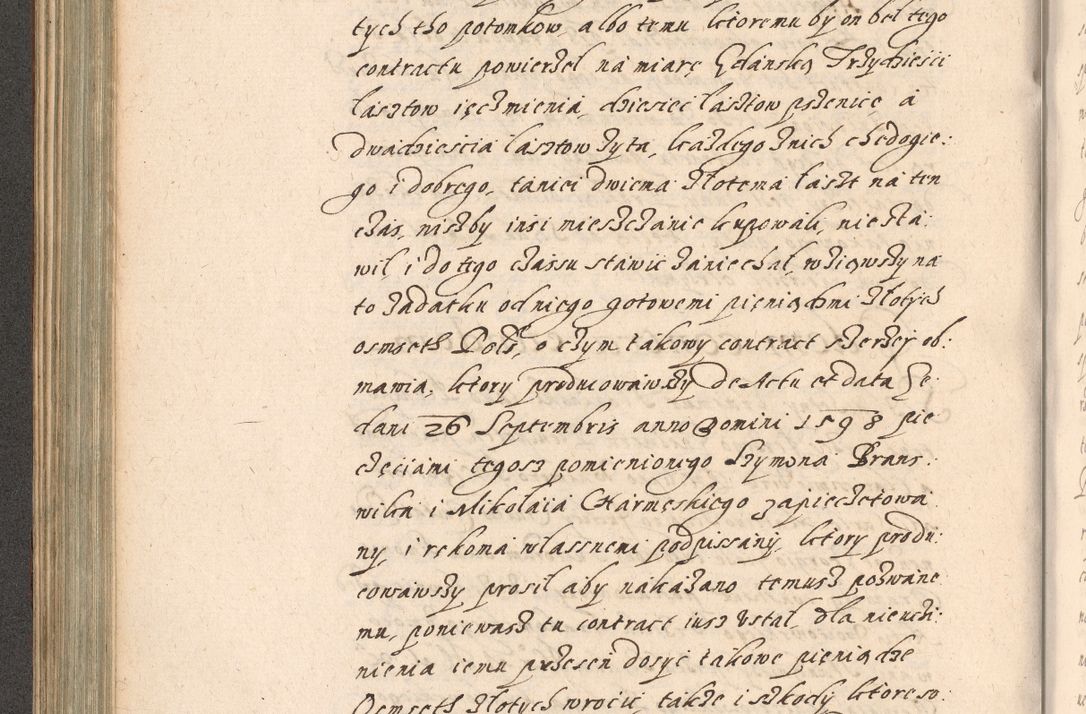 tych tho potomkow, albo temu ktoremu by on bel tego
contractu powierzel na miarę Gdanską Trzydzieści
lasztow ięczmienia, dziesięć lasztow pszenice, a
dwadzieścia lasztow żyta, każdego z nich chędogie:
go i dobrego, taniei dwiema złotema laszt na ten
czas, niszby insi mieszczanie kupowali, niesta:
wil, i do tego czassu stawic zaniechal, wziąwszy na
to zadatku od niego gotowemi pieniądzmi złotych
osmseth Pols, o czym takowy contract szerzej ob:
mawia, ktory producowawszy De Actu et data Ge:
dani 26 Septembris anno Domini 1598 pie
częciami tegosz pomienionego Szymona Brans:
wika i Mikolaiia Czarmeskiego zapieczetowa
ny, i rekoma wlassnemi podpissany, ktory produ:
cowawszy prosil aby nakazano temusz pozwane
mu, poniewasz tu contract iusz ustal dla nieuczi:
nienia iemu przeseń dosyć takowe pieniądze
Osmseth złotych wrocic, także i szkody ktore so: